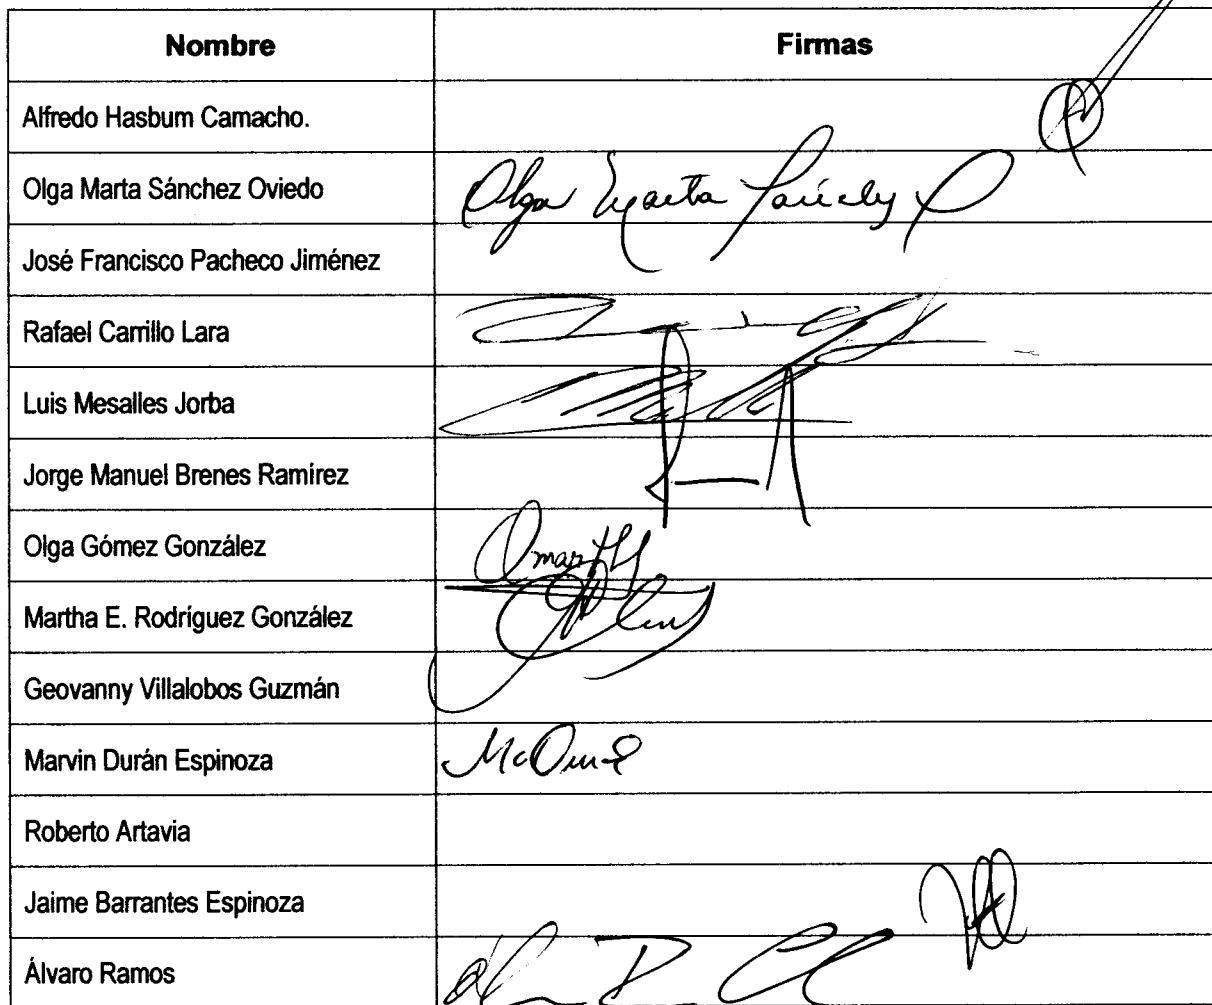 Nombre Firmas
Alfredo Hasbum Camacho.
Olga Marta Sánchez Oviedo Olga Marta Sánchez O
José Francisco Pacheco Jiménez
Rafael Carrillo Lara
Luis Mesalles Jorba
Jorge Manuel Brenes Ramírez
Olga Gómez González
Martha E. Rodríguez González
Geovanny Villalobos Guzmán
Marvin Durán Espinoza
Roberto Artavia
Jaime Barrantes Espinoza
Álvaro Ramos